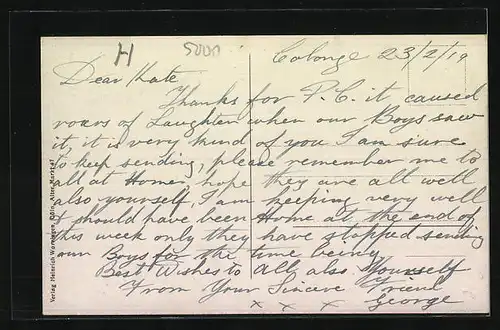 H 5000
Colonge 23/2/19
Dear Kate
Thanks for P.C. it caused
roars of Laughter when our Boys saw
it, it is very kind of you I am sure
to keep sending, please remember me to
all at Home hope they are all well
also yourself, I am keeping very well
I should have been Home at the end of
this week only they have stopped sending
Boys for the time being
Best Wishes to all also Yourself
From Your Sincere Friend
George
x x x x
Verlag Heinrich Cöln, Alter Markt